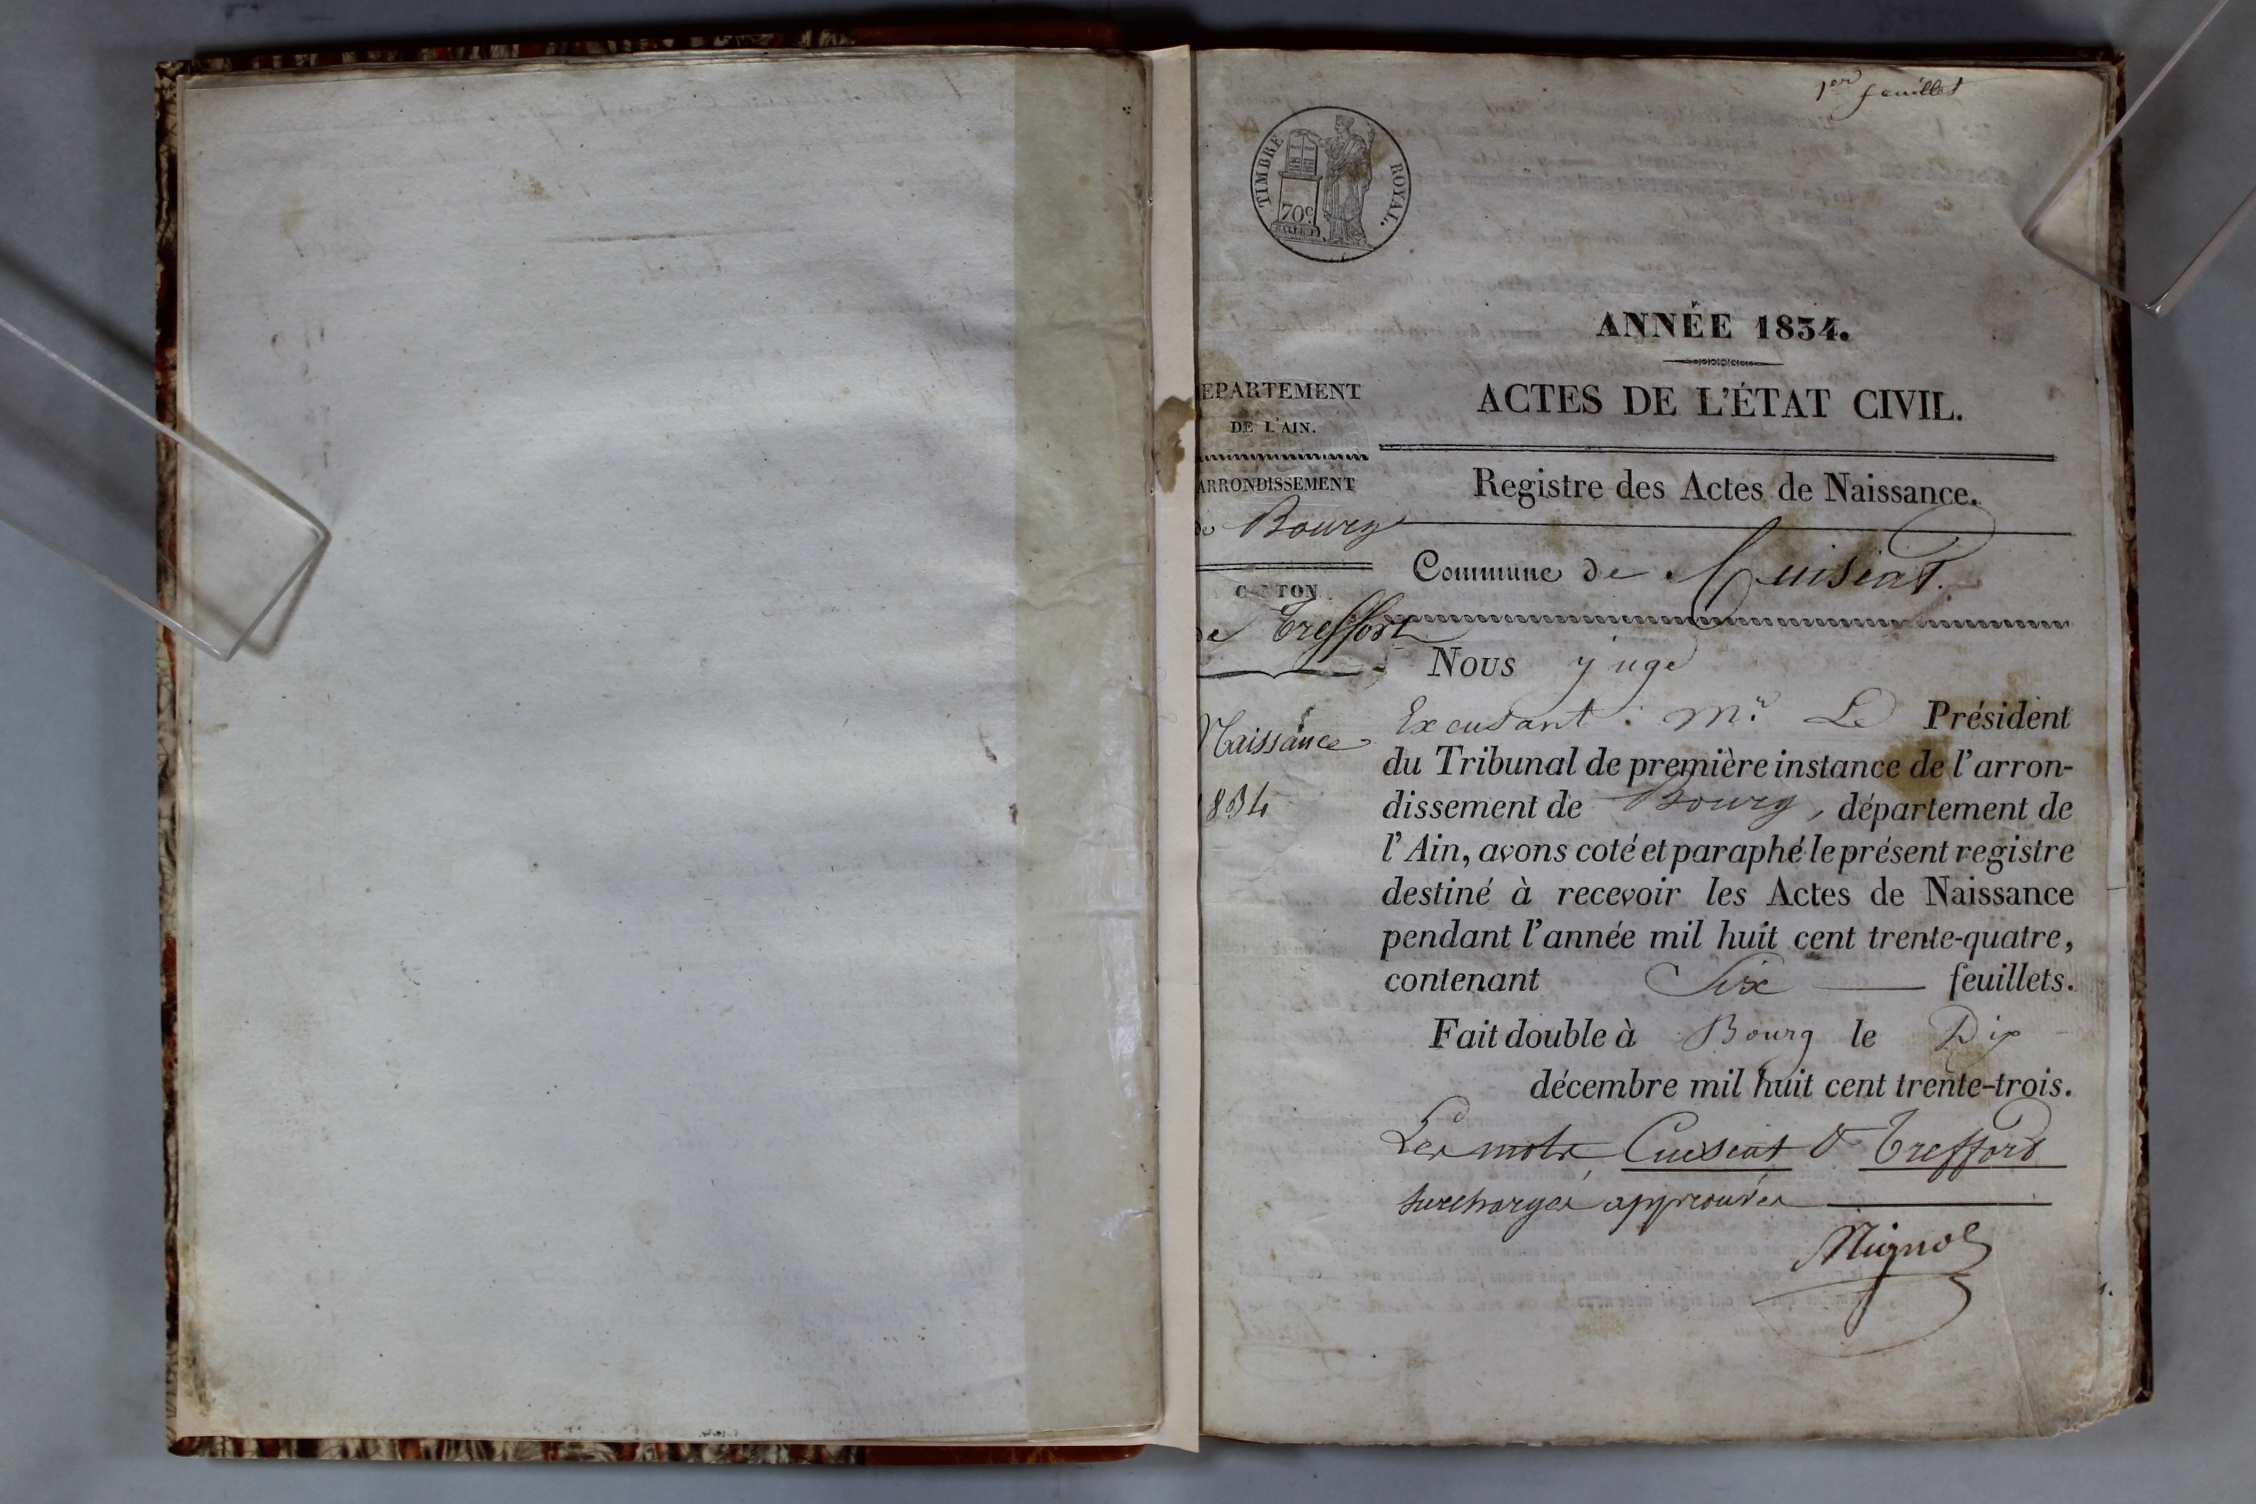 1er feuillet
TIMBRE ROYAL.
70c
ANNÉE 1834.
EPARTEMENT
DE L'AIN.
ARRONDISSEMENT
de Bourg
CANTON
de Treffort
Naissance
1834
ACTES DE L'ÉTAT CIVIL.
Registre des Actes de Naissance.
Commune de Cuisiat.
Nous juge
Excusant Mr. Le Président
du Tribunal de première instance de l'arron-
dissement de Bourg, département de
l'Ain, avons coté et paraphé le présent registre
destiné à recevoir les Actes de Naissance
pendant l'année mil huit cent trente-quatre,
contenant Six feuillets.
Fait double à Bourg le Dix
décembre mil huit cent trente-trois.
Les mots Cuisiat & Treffort
surchargés approuvés